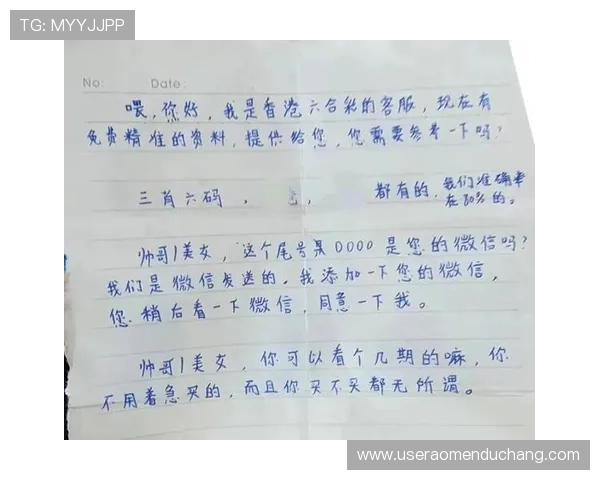 TG: MYYJJPP
No: Date:
喂,你好,我是香港六合彩的客服,现在有
免费精准的资料,提供给您,您需要参考一下吗?
三肖六码, , 都有的,我们准确率
在80%的。
帅哥/美女,这个尾号某0000是您的微信吗?
我们是微信发送的,我添加一下您的微信,
您稍后看一下微信,同意一下我。
帅哥/美女,你可以看个几期的嘛,你
不用着急买的,而且你买不买都无所谓。
www.useraomenduchang.com